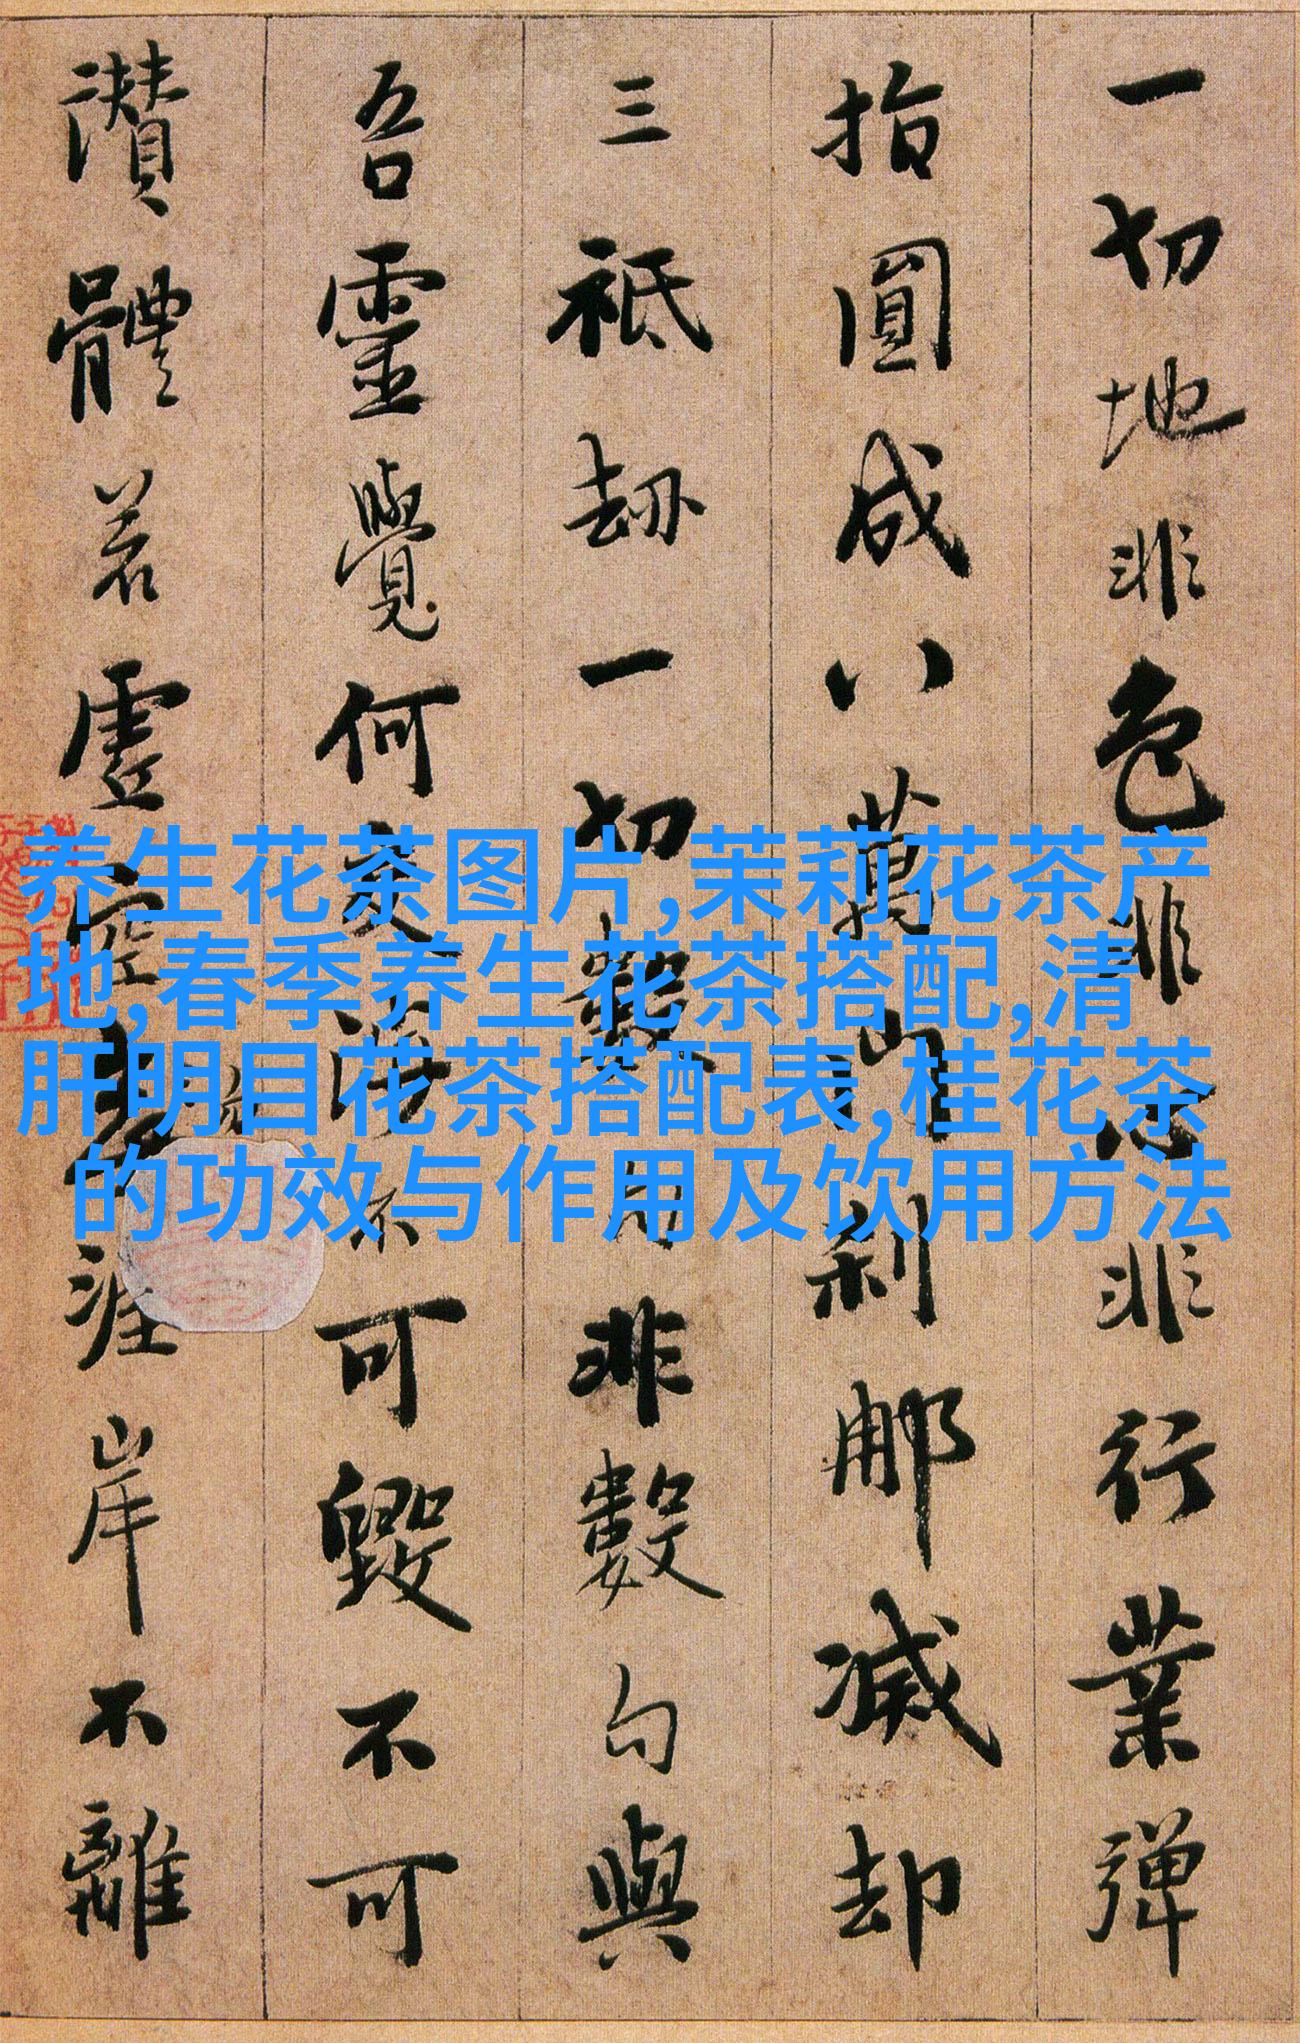 一切地非色非心非行業彈
指圓成八萬門刹那滅却
三祇劫一切數句非數句與
吾靈覺何交涉不可毀不可
讚體若虛空勿涯岸不離
养生花茶图片,茉莉花茶产
地,春季养生花茶搭配,清
肝明目花茶搭配表,桂花茶
的功效与作用及饮用方法